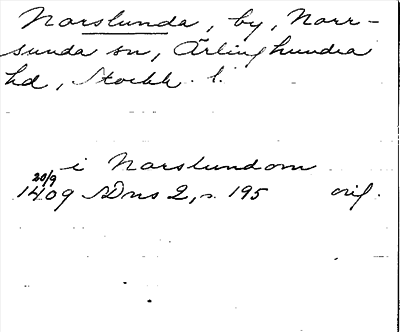 Norslunda, by, Norr-
sunda sn, Ärlinghundra
hd, Stockh. l.
i Norslundom
20/9
1409 SDns 2, s. 195 orig.